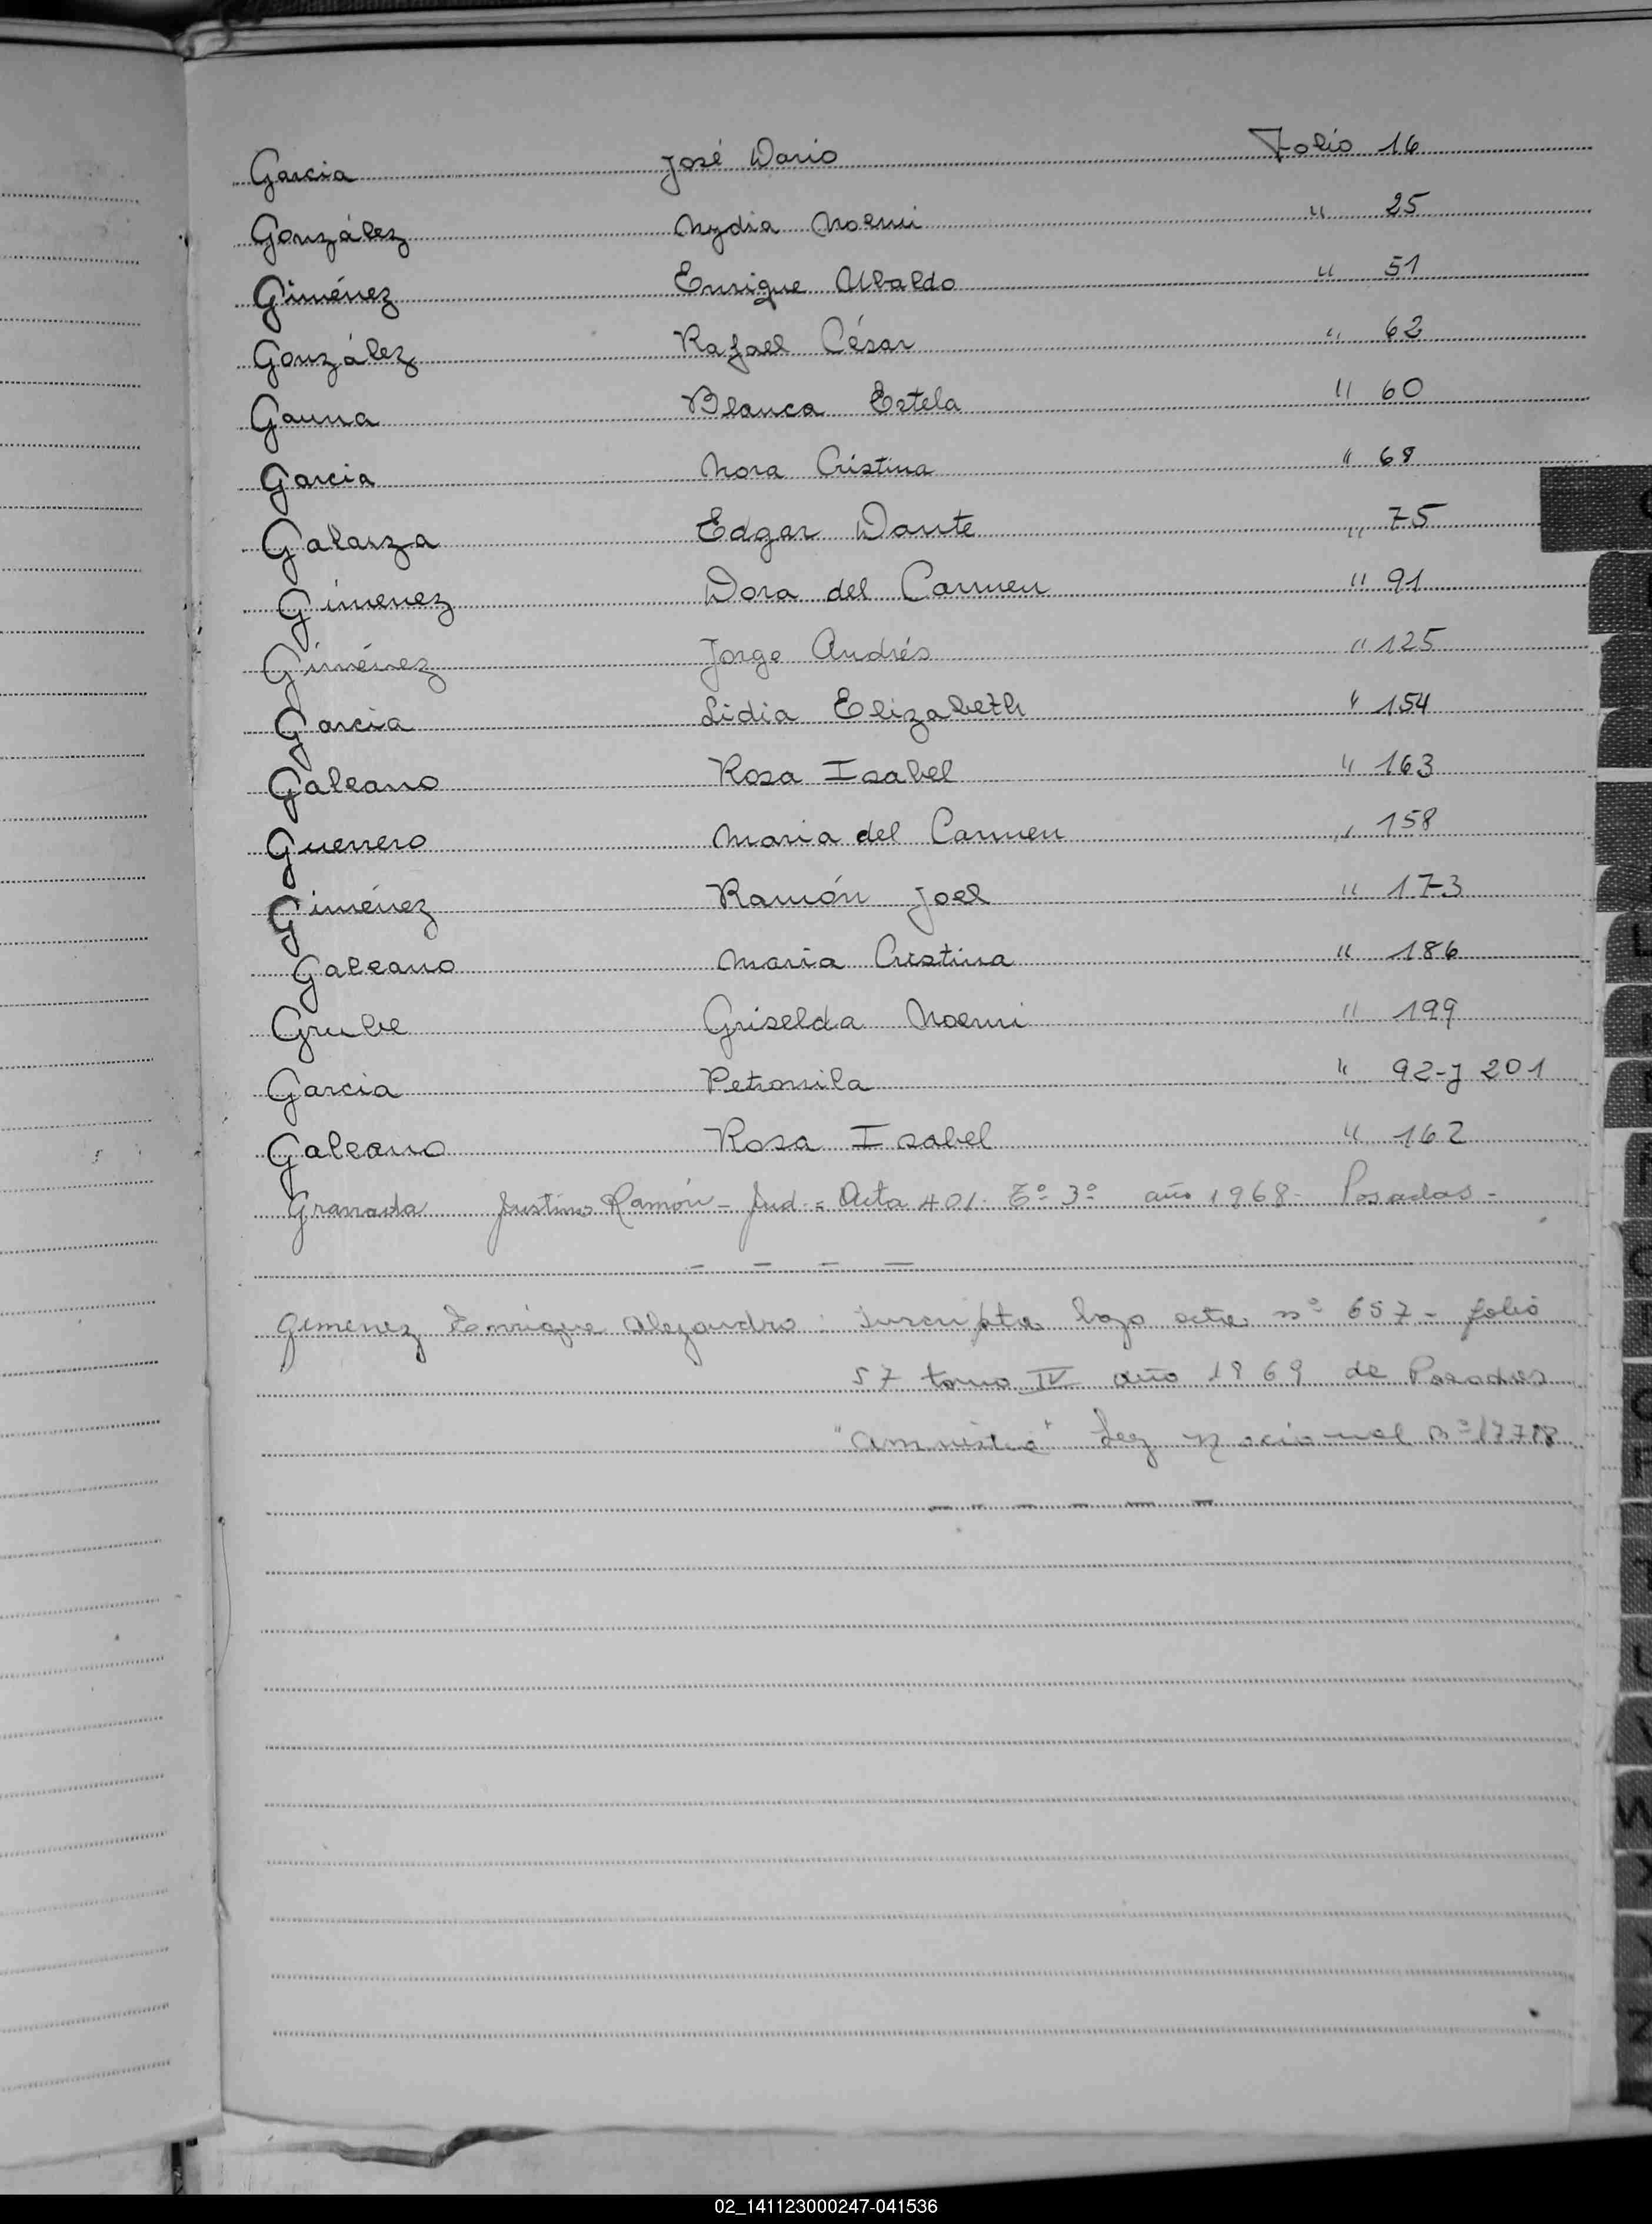 Garcia José Dario Folio 16
González Nydia Noemi " 25
Giménez Enrique Ubaldo " 51
González Rafael César " 62
Gauna Blanca Estela " 60
Garcia Nora Cristina " 68
Galarza Edgar Dante " 75
Gimenez Dora del Carmen " 91
Giménez Jorge Andrés " 125
Garcia Lidia Elizabeth " 154
Galeano Rosa Isabel " 163
Guerrero Maria del Carmen " 158
Giménez Ramón Joel " 173
Galeano Maria Cristina " 186
Grube Griselda Noemi " 199
Garcia Petronila " 92-y 201
Galeano Rosa Isabel " 162
Granada Justino Ramón - Jud = Acta 401. Tº 3º año 1968 - Posadas -
Gimenez Enrique Alejandro : Inscripta bajo acta nº 657 - folio
57 tomo IV año 1969 de Posadas
"amnistia" Ley Nacional nº
02_141123000247-041536